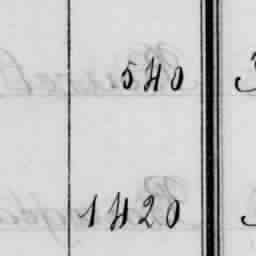 540
1420